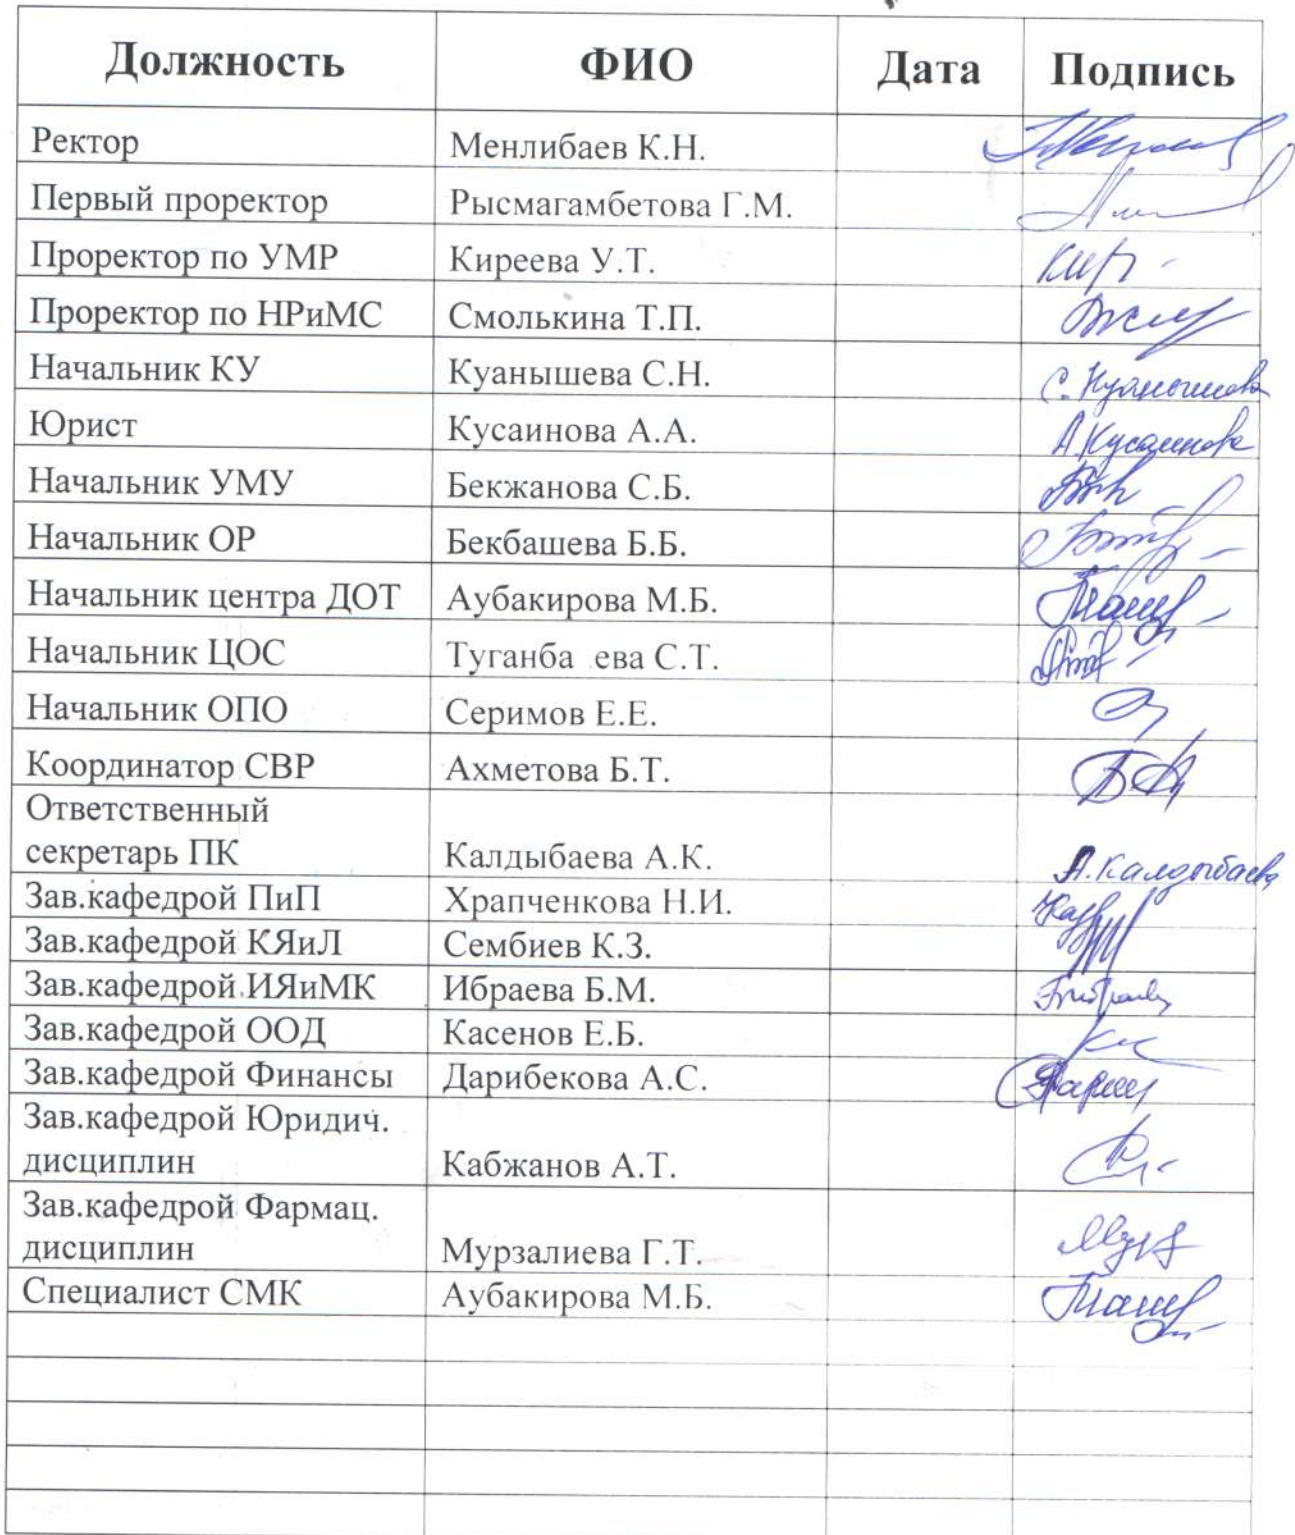 Должность ФИО Дата Подпись
Ректор Менлибаев К.Н.
Первый проректор Рысмагамбетова Г.М.
Проректор по УМР Киреева У.Т. Кир
Проректор по НРиМС Смолькина Т.П.
Начальник КУ Куанышева С.Н. С. Куанышева
Юрист Кусаинова А.А. А.Кусаинова
Начальник УМУ Бекжанова С.Б.
Начальник ОР Бекбашева Б.Б.
Начальник центра ДОТ Аубакирова М.Б.
Начальник ЦОС Туганба ева С.Т.
Начальник ОПО Серимов Е.Е.
Координатор СВР Ахметова Б.Т.
Ответственный
секретарь ПК Калдыбаева А.К. А.Калдыбаева
Зав.кафедрой ПиП Храпченкова Н.И.
Зав.кафедрой КЯиЛ Сембиев К.З.
Зав.кафедрой ИЯиМК Ибраева Б.М.
Зав.кафедрой ООД Касенов Е.Б.
Зав.кафедрой Финансы Дарибекова А.С.
Зав.кафедрой Юридич.
дисциплин Кабжанов А.Т.
Зав.кафедрой Фармац.
дисциплин Мурзалиева Г.Т.
Специалист СМК Аубакирова М.Б.